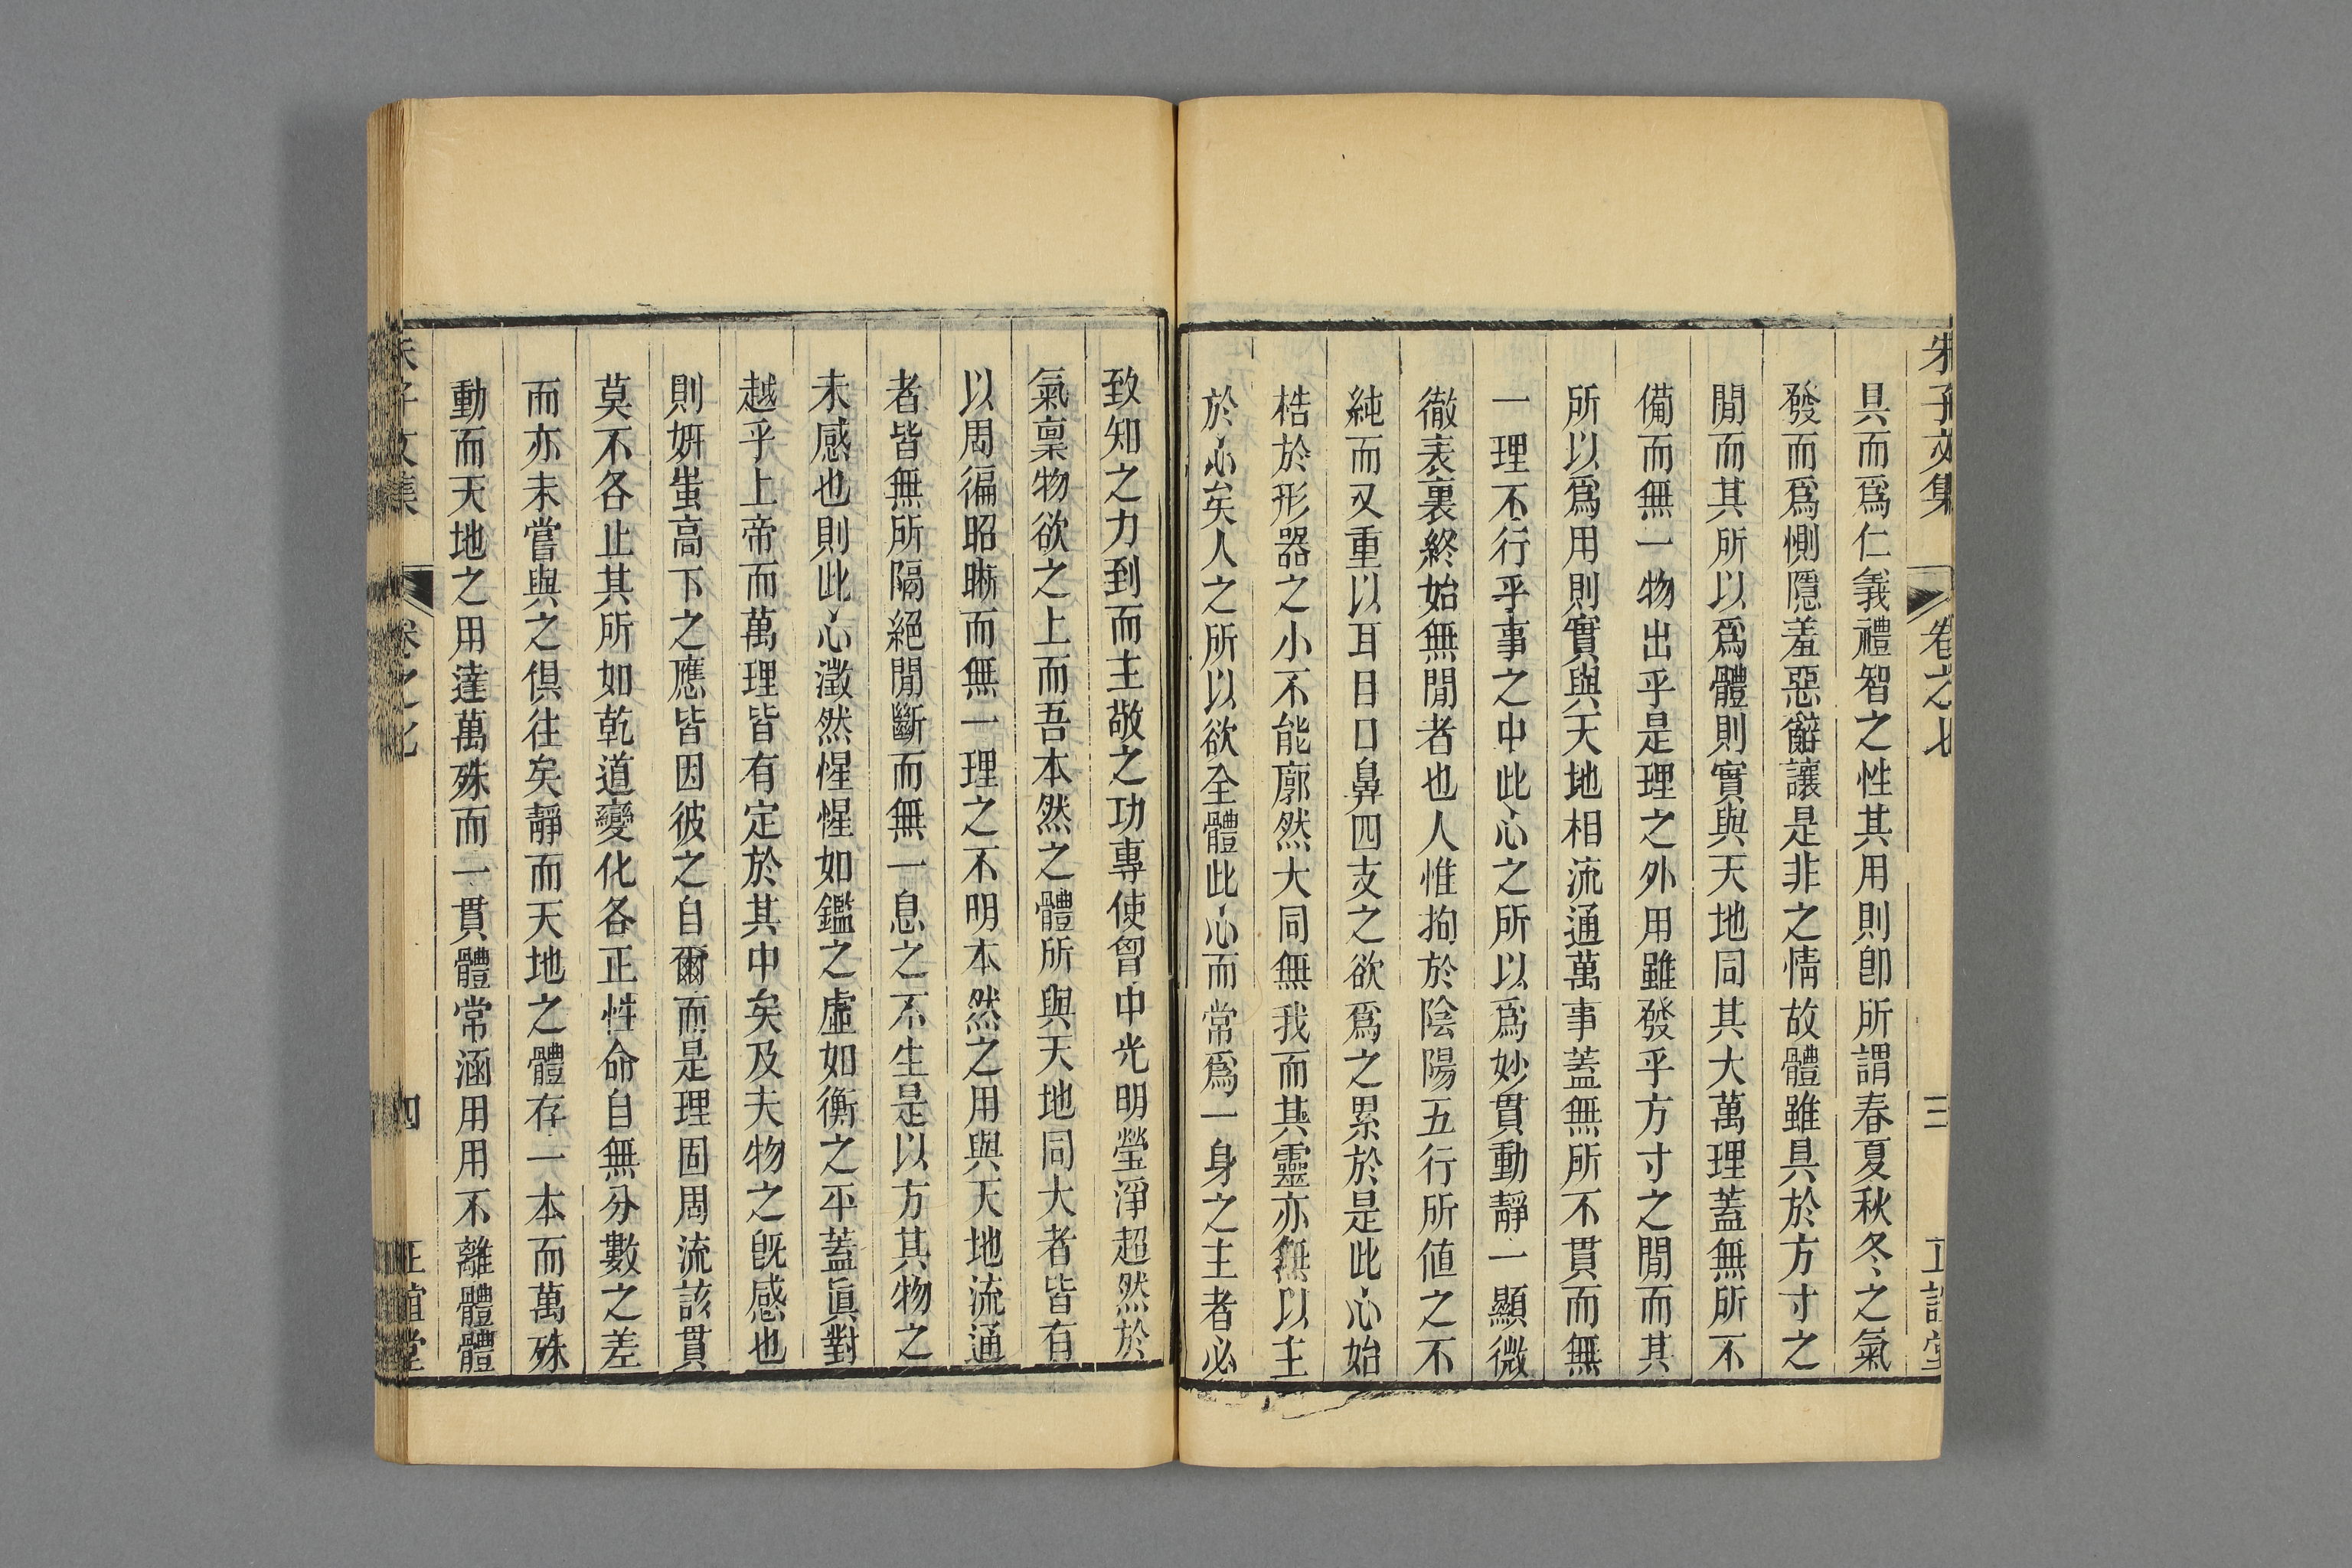 朱子文集 卷之七 三 正誼堂
具而爲仁義禮智之性其用則卽所謂春夏秋冬之氣
發而爲惻隱羞惡辭讓是非之情故體雖具於方寸之
閒而其所以爲體則實與天地同其大萬理蓋無所不
備而無一物出乎是理之外用雖發乎方寸之閒而其
所以爲用則實與天地相流通萬事蓋無所不貫而無
一理不行乎事之中此心之所以爲妙貫動靜一顯微
徹表裏終始無閒者也人惟拘於陰陽五行所値之不
純而又重以耳目口鼻四支之欲爲之累於是此心始
梏於形器之小不能廓然大同無我而其靈亦無以主
於心矣人之所以欲全體此心而常爲一身之主者必
致知之力到而主敬之功專使胷中光明瑩淨超然於
氣稟物欲之上而吾本然之體所與天地同大者皆有
以周徧昭晰而無一理之不明本然之用與天地流通
者皆無所隔絕閒斷而無一息之不生是以方其物之
未感也則此心澂然惺惺如鑑之虛如衡之平蓋眞對
越乎上帝而萬理皆有定於其中矣及夫物之旣感也
則姸蚩高下之應皆因彼之自爾而是理固周流該貫
莫不各止其所如乾道變化各正性命自無分數之差
而亦未嘗與之俱往矣靜而天地之體存一本而萬殊
動而天地之用達萬殊而一貫體常涵用用不離體體
朱子文集 卷之七 四 正誼堂